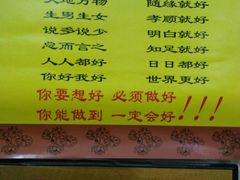 天地万物 随缘就好
生男生女 孝顺就好
说多说少 明白就好
忍而言之 知足就好
人人都好 日日都好
你好我好 世界更好
你要想好 必须做好
你能做到 一定会好!!!